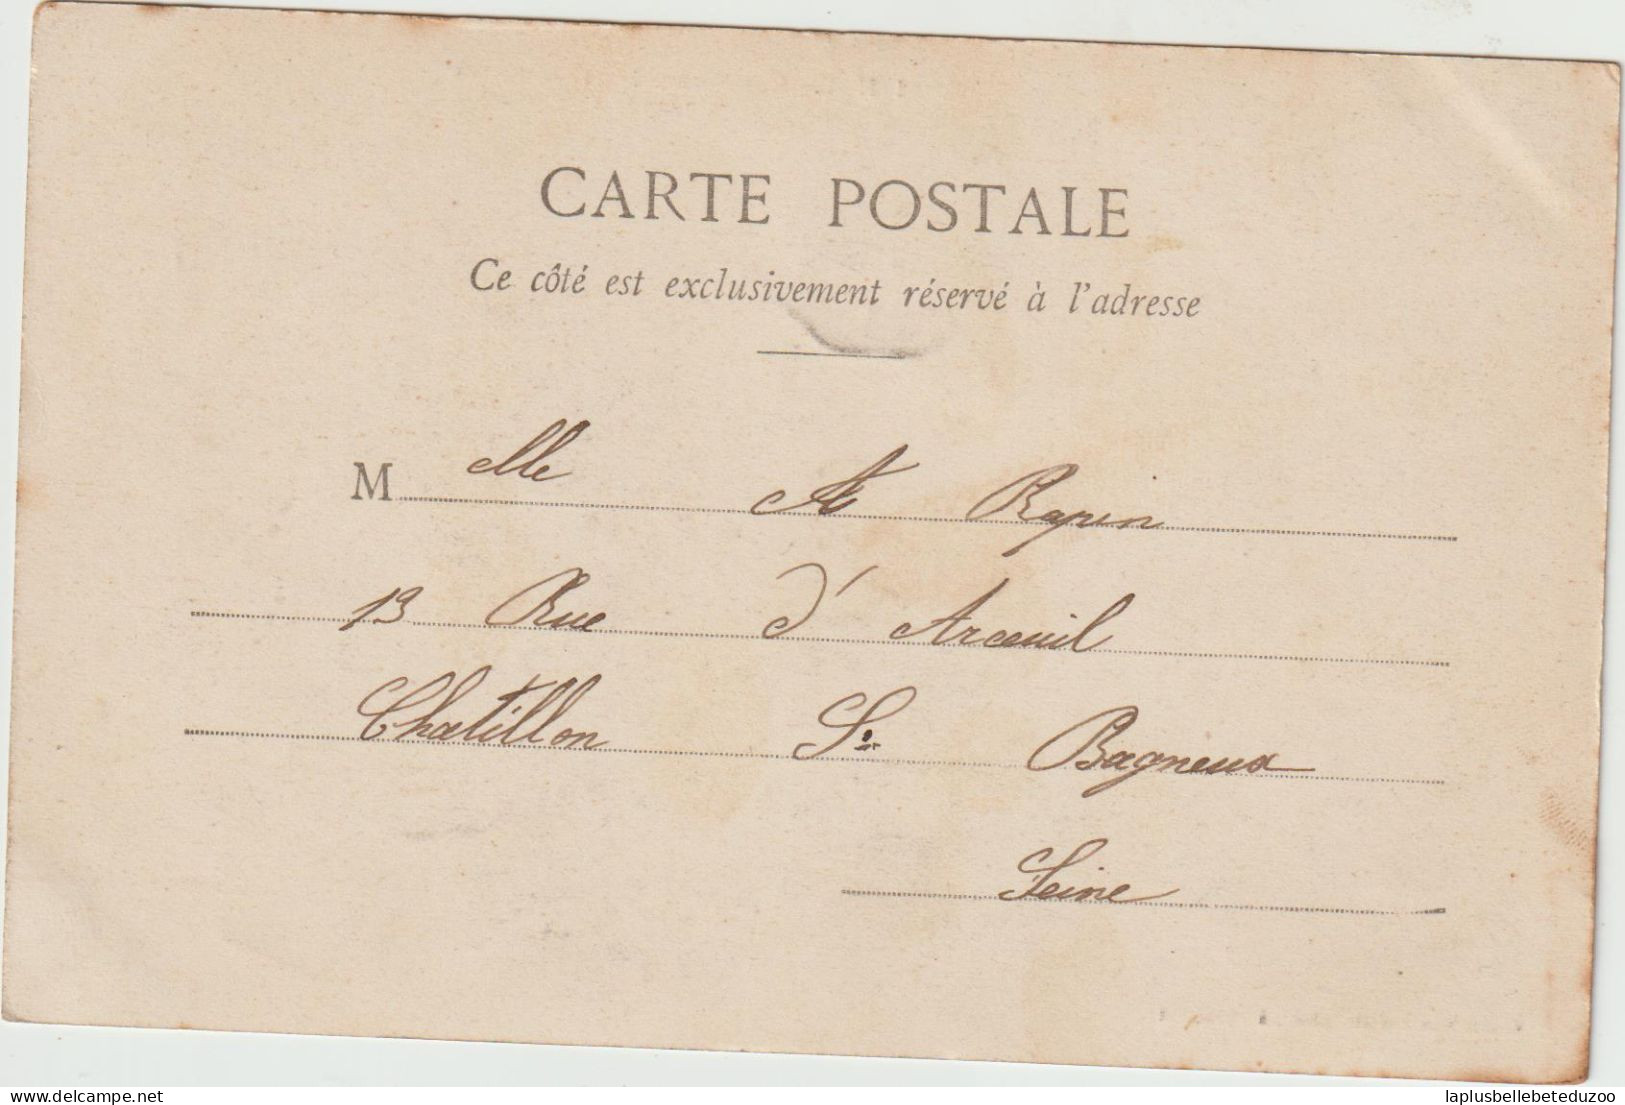 CARTE POSTALE
Ce côté est exclusivement réservé à l'adresse
Melle A Rapin
13 Rue d'Arceuil
Chatillon S. Bagneux
Seine
delcampe.net
laplusbellebeteduzoo